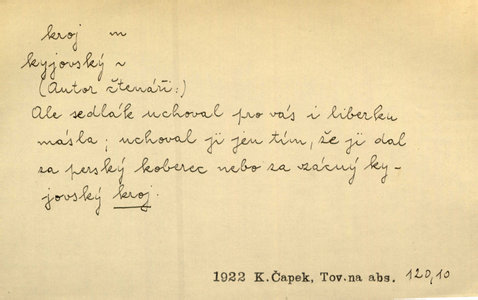 kroj m
kyjovský ~
(Autor čtenáři:)
Ale sedlák uchoval pro vás i liberku
másla; uchoval ji jen tím, že ji dal
za perský koberec nebo za vzácný ky-
jovský kroj.
1922 K.Čapek, Tov.na abs. 120,10